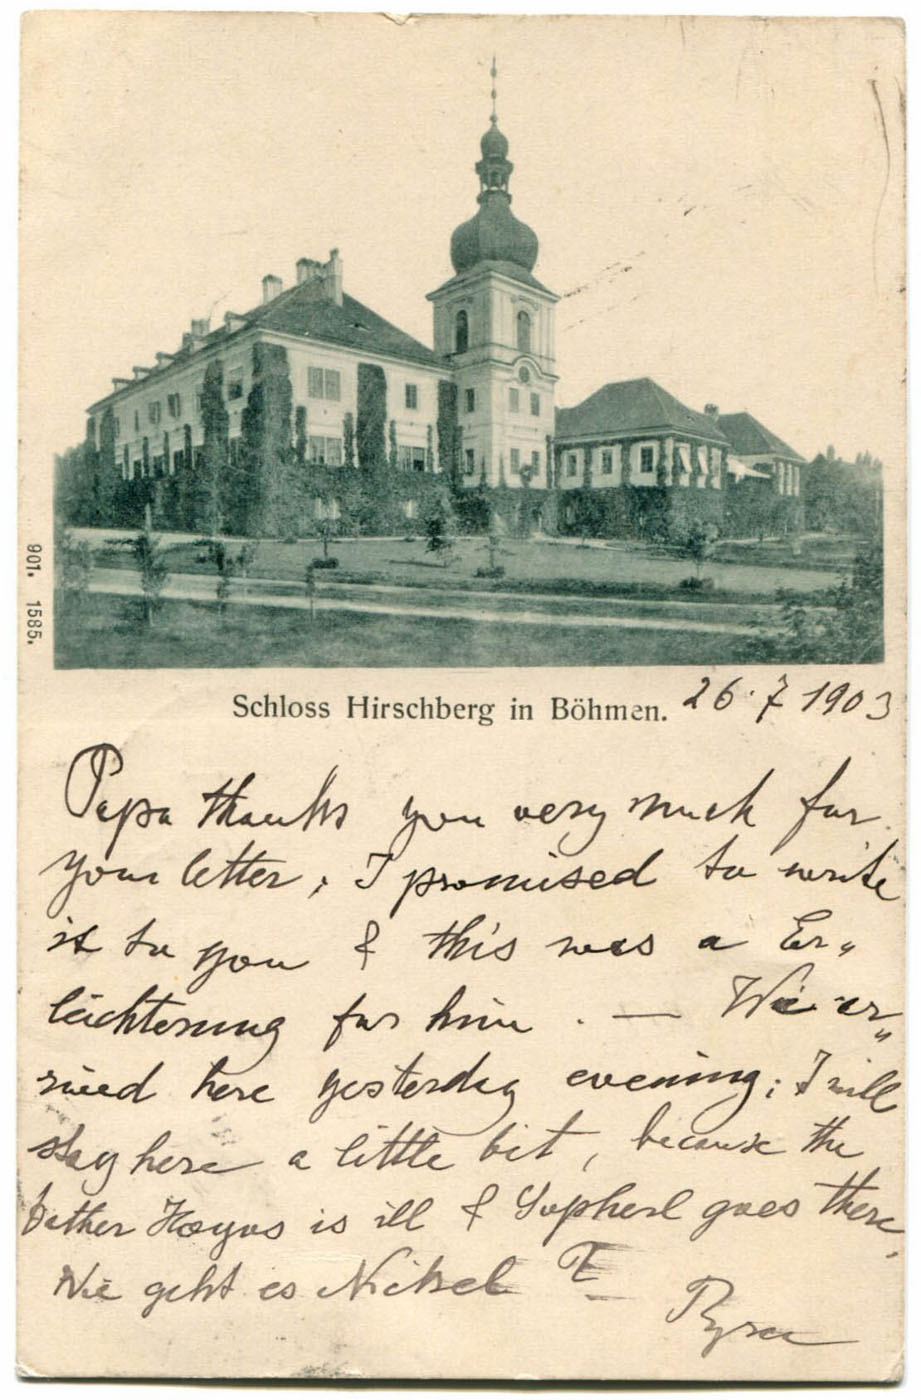 Schloss Hirschberg in Böhmen. 26.7 1903
901. 1585.
Papa thanks you very much for
your letter, I promised to write
it to you & this was a Er„
leichterung for him. — We ar„
rived here yesterday evening; I will
stay here a little bit, because the
Father Hoyos is ill & goes there,
Wie geht es Nickel